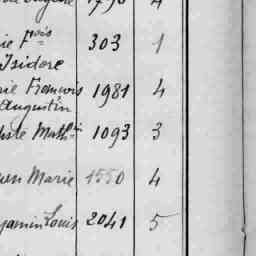 1796 4
ie Fois 303 1
Isidore
rie François 1981 4
Augustin
Math 1093 3
Marie 1550 4
jamin Louis 2041 5